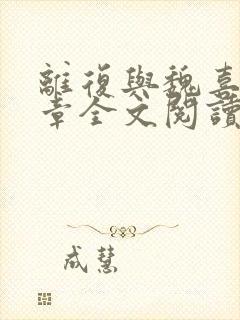 離復與魏喜
章全文閱讀
成慧